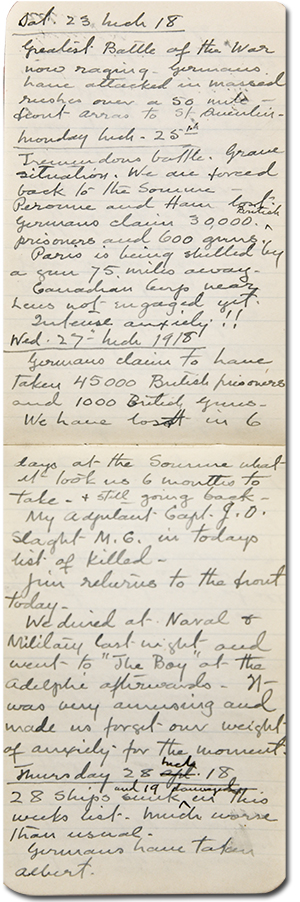 Sat 23 Mch 18
Greatest Battle of the War
now raging - Germans
have attacked in massed
rushes over a 50 mile
front Arras to St Quentin -
Monday Mch - 25th
Tremendous battle. Grave
situation. We are forced
back to the Somme -
Peronne and Ham lost.
Germans claim 30,000 British
prisoners and 600 guns.
Paris is being shelled by
a gun 75 miles away -
Canadian Corps near
Lens not engaged yet.
Intense anxiety!!
Wed. 27 - Mch 1918
Germans claim to have
taken 45000 British prisoners
and 1000 British guns -
We have lost in 6
days at the Somme what
it took us 6 months to
take - & still going back -
My Adjutant Capt. J.D.
Slaght M.C. in todays
list of killed -
Jim returns to the front
today -
We dined at Naval &
Military last night and
went to "The Boy" at the
Adelphi afterwards - It
was very amusing and
made us forget our weight
of anxiety for the moment -
Thursday 28 Mch 18
28 ships sunk and 19 damaged in this
weeks list - much worse
than usual -
Germans have taken
Albert.